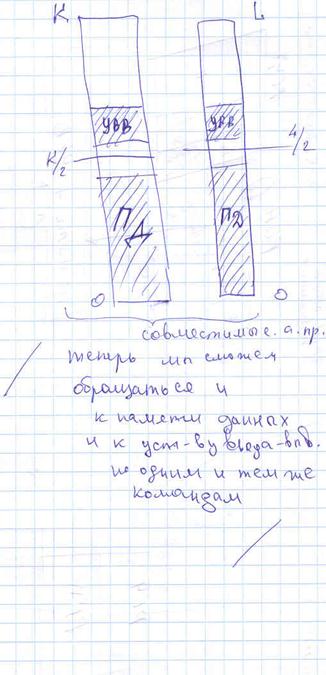 K L
УВВ УВВ
K/2 L/2
ПД ПД
0 0
совместимые а. пр.
теперь мы сможем
обращаться и
к памяти данных
и к уст-ву ввода-выв.
по одним и тем же
командам